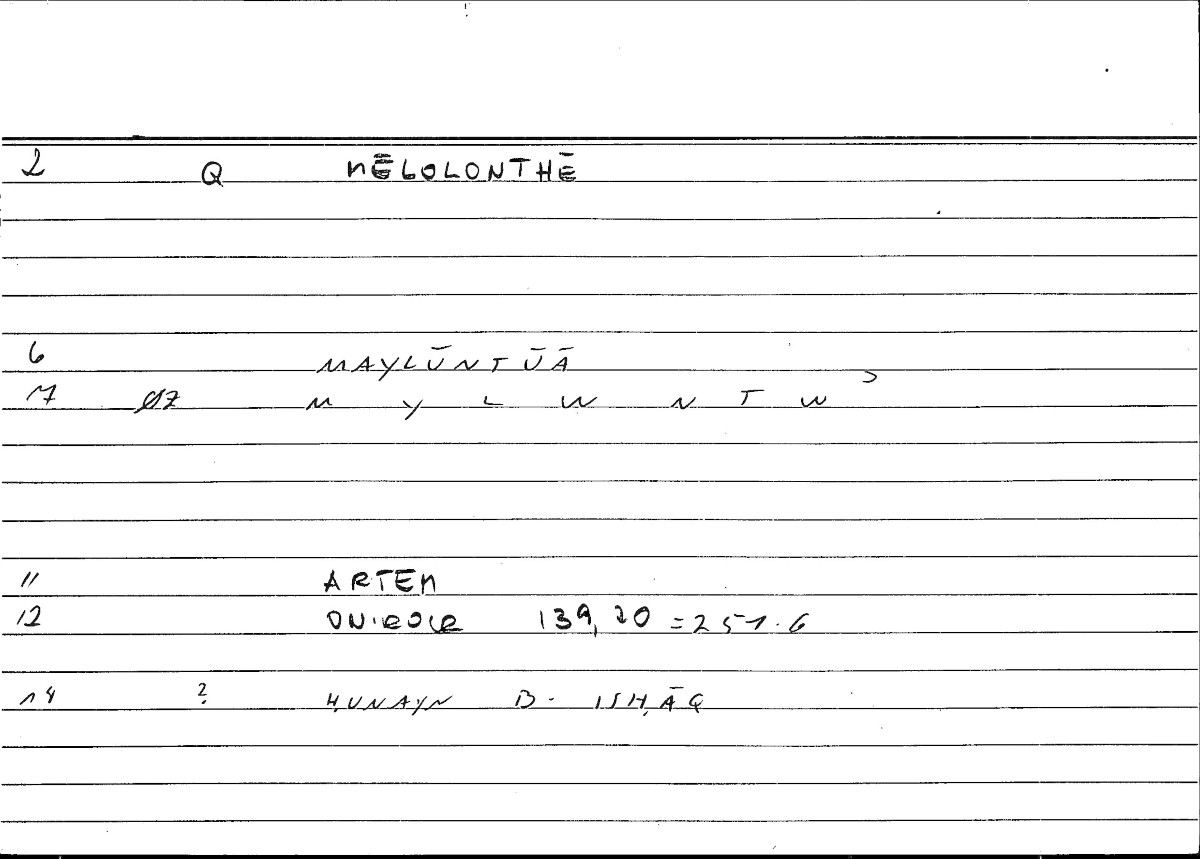 2 Q MĒLOLONTHĒ
6 MAYLŪNTŪĀ
7 ØZ M Y L W N T W ʾ
11 ARTEM
12 ONIROCR 139,20 = 251.6
14 ? ḤUNAYN B. ISḤĀQ